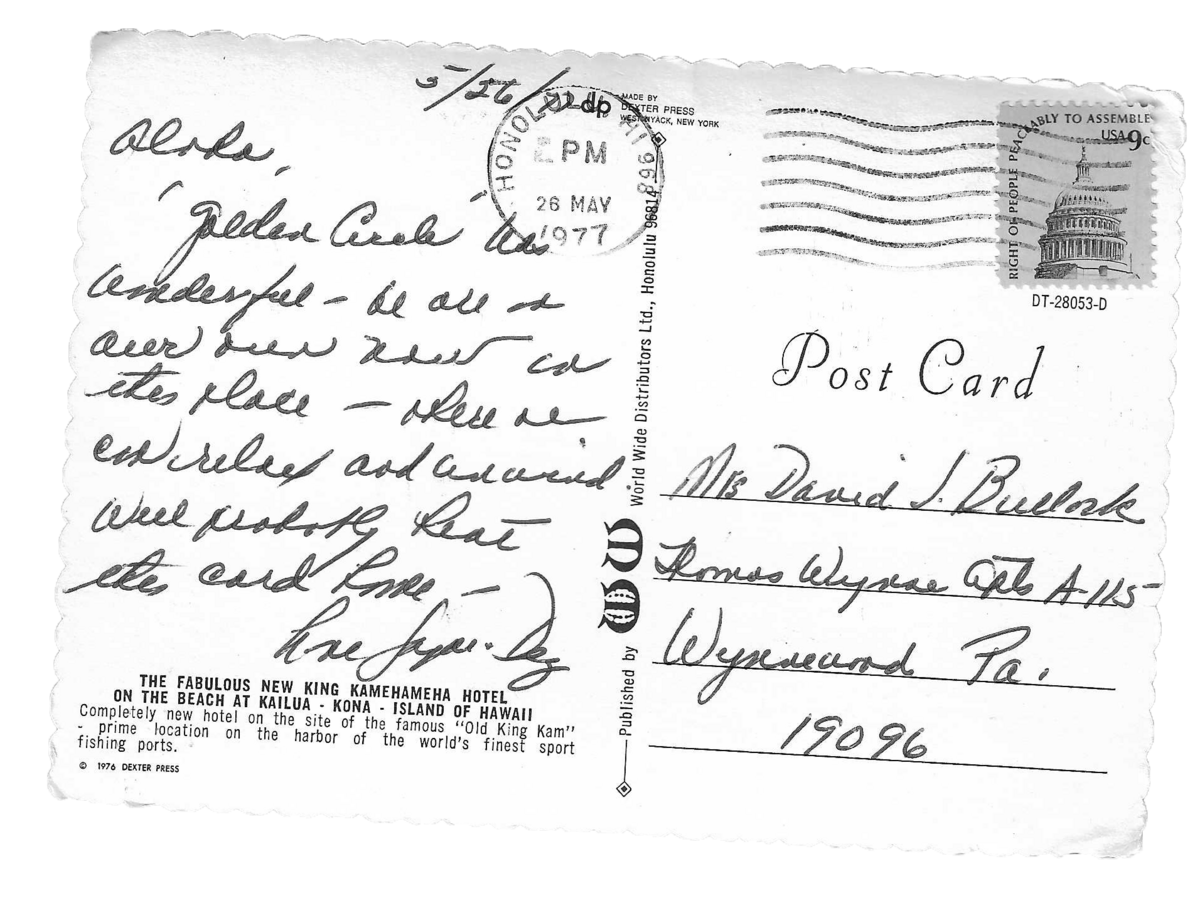 5/26/77
Aloha,
'Golden Circle' was
wonderful - we are on
our own now in
this place - where we
can relax and unwind.
Will probably beat
this card home -
Love
THE FABULOUS NEW KING KAMEHAMEHA HOTEL
ON THE BEACH AT KAILUA - KONA - ISLAND OF HAWAII
Completely new hotel on the site of the famous "Old King Kam"
- prime location on the harbor of the world's finest sport
fishing ports.
© 1976 DEXTER PRESS
dp
MADE BY
DEXTER PRESS
WEST NYACK, NEW YORK
HONOLULU HI 968
PM
26 MAY
1977
Published by World Wide Distributors Ltd., Honolulu 96814
RIGHT OF PEOPLE PEACEABLY TO ASSEMBLE
USA 9c
DT-28053-D
Post Card
Mrs David J. Bullock
Thomas Wynne Apts A-115
Wynnewood Pa.
19096